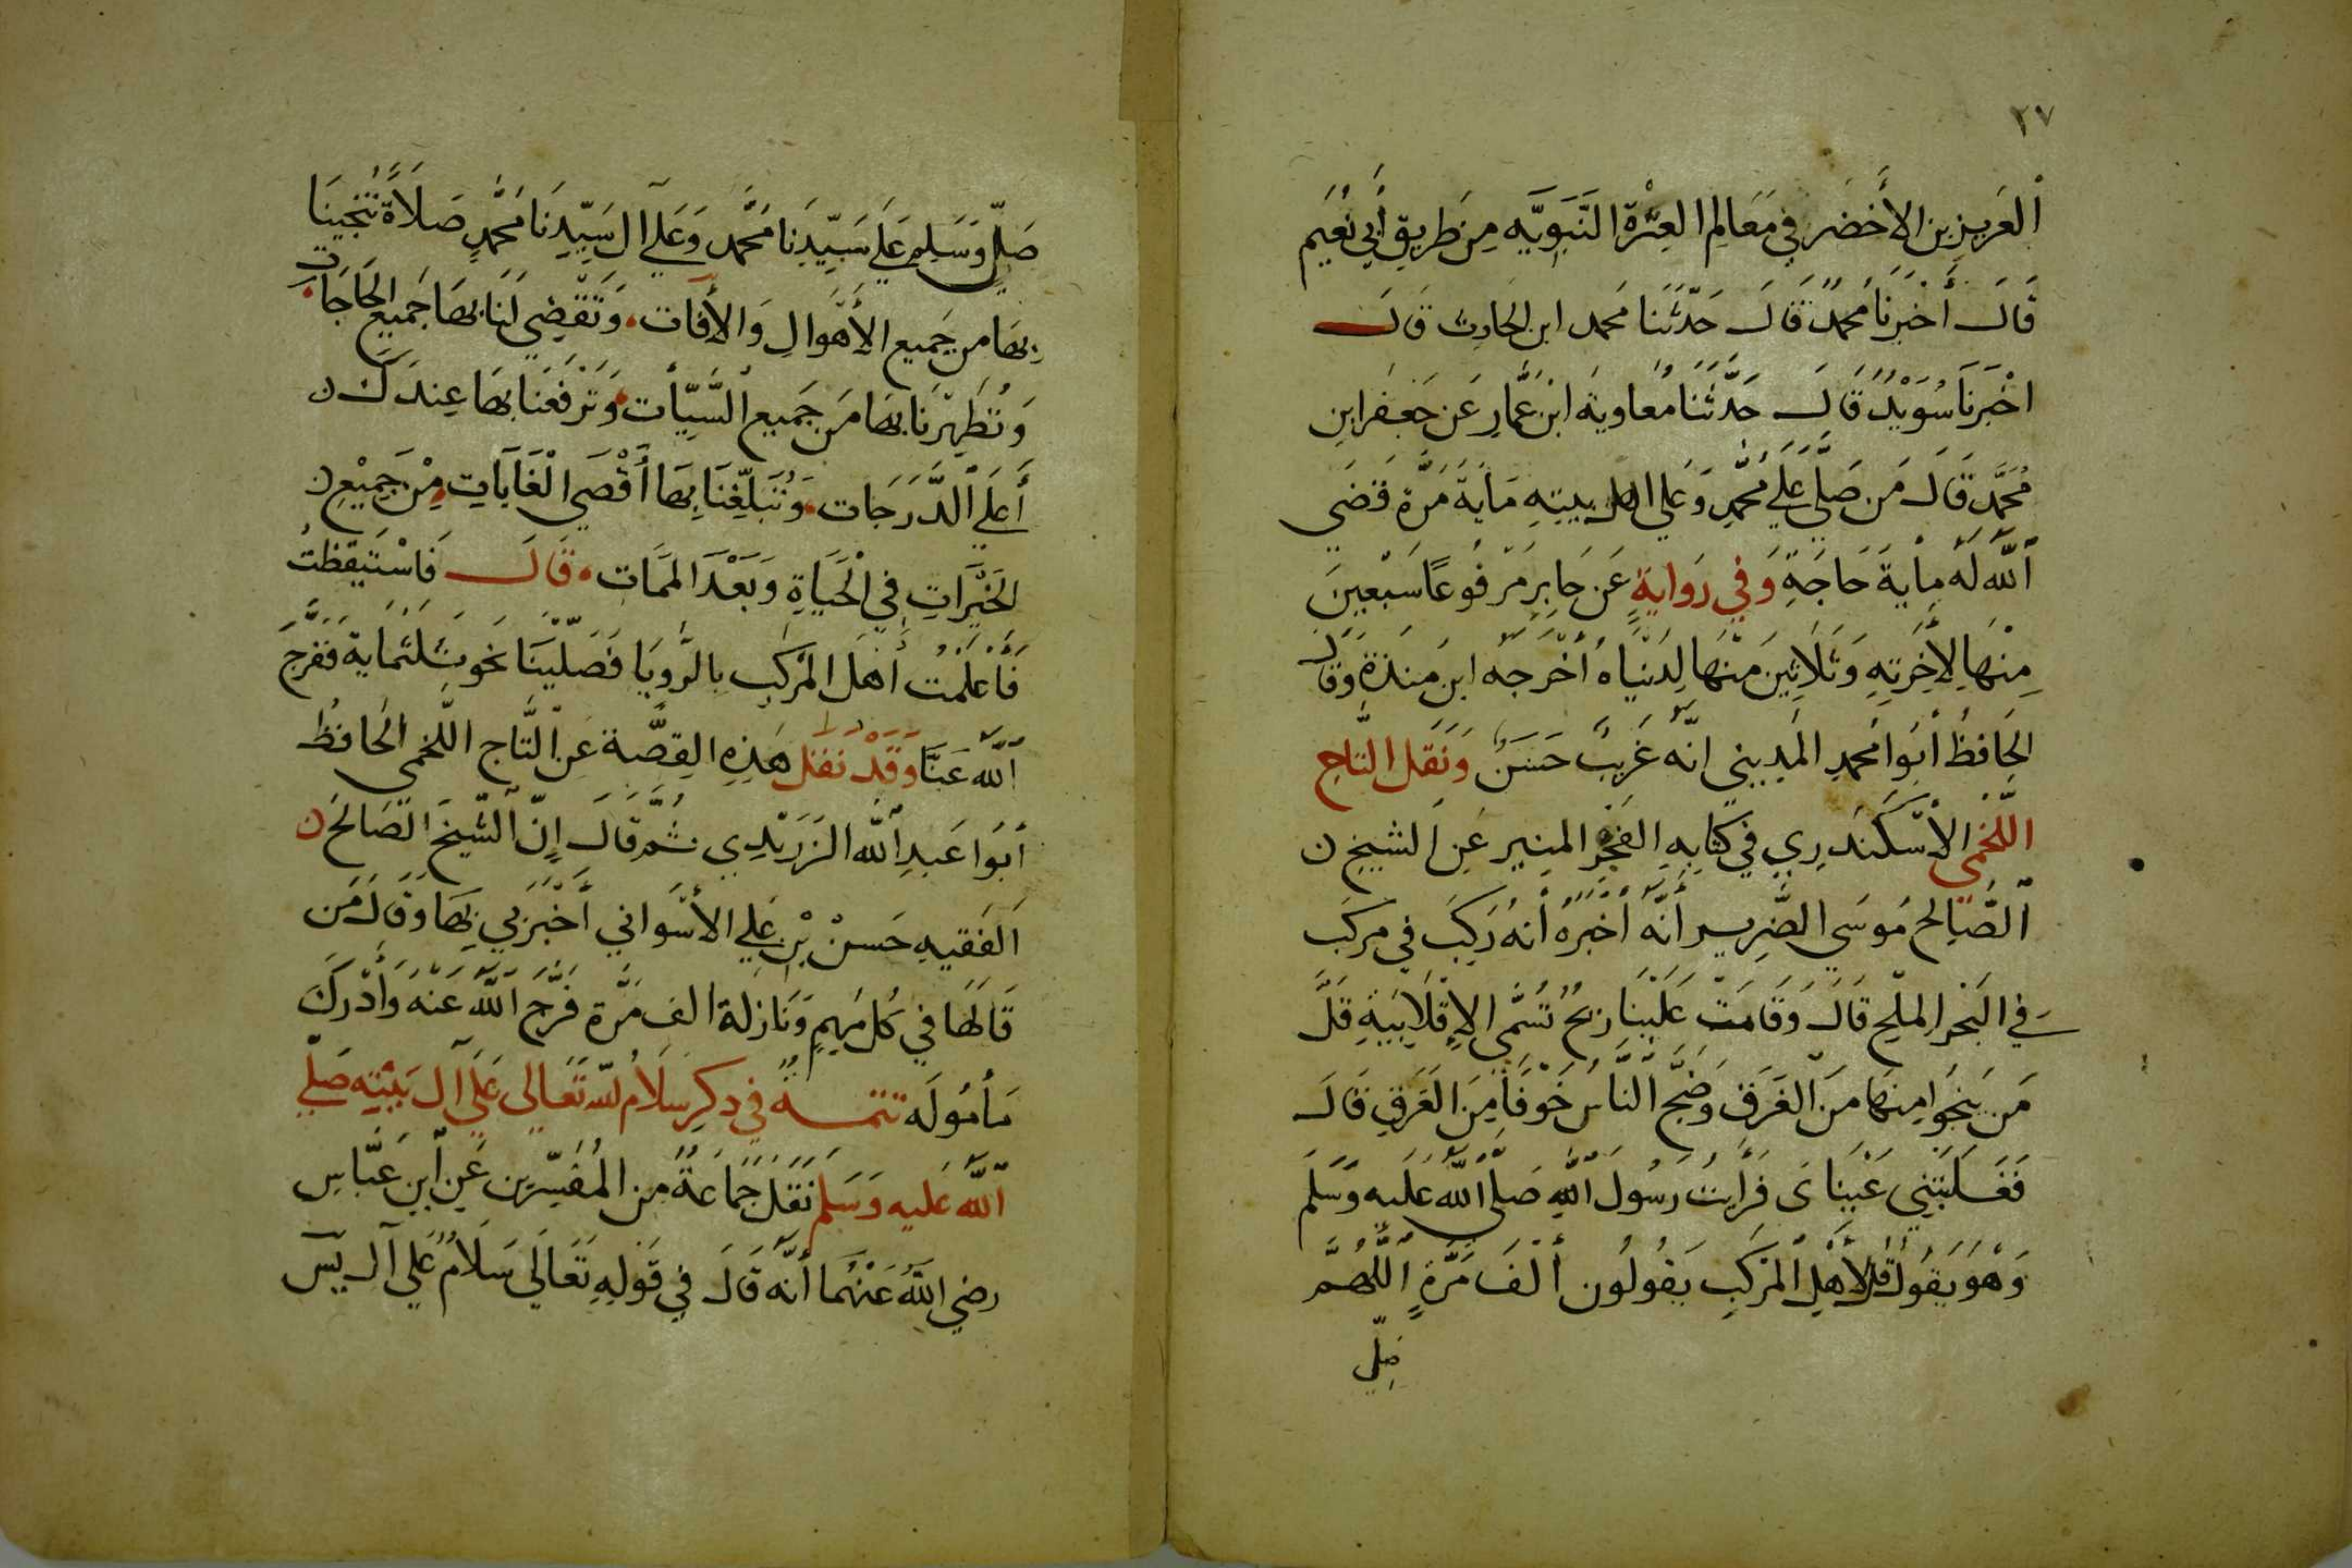 ٢٧
العَزِيزِ بن الأَخضَر فِي مَعَالِم العِتْرة النَّبَويَّه مِنَ طَرِيقِ أَبي نُعَيم
قَالَ أَخبَرنَا مُحمدٌ قَالَ حَدّثَنَا محَمد ابن الحَارِث قَالَ
اخْبَرنَا سُوَيْدٌ قَالَ حَدَّثَنَا مُعَاويةَ ابْن عَمَّارِ عَن جَعفَر ابنِ
مُحَمَّد قَالَ مَن صَلَّي عَلَي مُحَمَّدِ وَعَلي اهل بيتِهِ مَايةَ مَرَّة قَضَي
اَللَّه لَهُ مِأيةَ حَاجَةٍ وَفي رَوايةٍ عَن جَابِرِ مَرفُوعًا سَبْعِينَ
مِنْهَا لأِخِرَتِهِ وَثَلَاثِينَ مِنْهَا لِدُنْيَاهُ أَخْرَجَهُ ابن مَندَة وقَالَ
الحَافِظُ أبُوا مُحمدِ المَدِيني انَّهُ غَرِيبٌ حَسَنٌ وَنَقَل التَّاجِ
اللَّخمي الأسْكَندَرِي فِي كِتَابِهِ الفَجْر المنِير عَنِ الشيخِ
الصَّالح مُوسَي الضَّرِير أنَّهُ أخْبَرَهُ أنهُ رَكِبَ في مركَب
في البَحْر الملْحِ قَالَ وَقَامَتْ عَلَيْنَا رِيحٌ تُسَمَّي الإِقْلَابِيَةِ قَلَّ
مَن يَنجُوا مِنهَا مِنَ الغَرَق وَضَجَّ النَّاسُ خَوْفًا مِنَ الغَرَقِ قَالَ
فَغَلَبَتنِي عَيْنَاىَ فَرَأيتُ رَسُولَ اللهِ صَلّى اللَّهُ عَلَيه وَسَلَّمَ
وَهُوَ يَقُولُ قُل لأَهلِ المَرْكَبِ يَقُولُون ألْفَ مَرَّةٍ اَللَّهُمَّ
صَلِّي
صَلِّ وَسَلِم عَلَي سَيِّدِنَا مُحَمَّد وَعَلَي آل سَيِّدِنَا مُحَمَّدٍ صَلَاةً تُنْجِينَا
بِهَا من جَمِيع الأَهْوَالِ وَالأفَات وَتَقْضِي لَنَا بهَا جَمِيع الحَاجَات
وَتُطَهِرّنَا بهَا مَن جَمِيعِ السَّيِّأَت وَتَرْفَعْنَا بهَا عِندَكَ
أَعلَي الدَّرَجَات وَتُبَلِّغنَا بِهَا أَقْصَي الْغَايَاتِ مِنْ جَمِيْعِ
الخَيْرَاتِ فِي الْحَيَاةِ وَبَعْدَ المَمَات قَالَ فَاسْتَيقظتُ
فَأعلَمْتُ أهْلَ المَرْكِب بِالرُّويَا فَصَلّيْنَا نَحو ثَلَثَماية فَفَرَّجَ
اللَّهُ عَنَّا وَقَدْ نَقَل هَذِهِ القِصَّة عَن التَّاج اللَّخمي الحَافظُ
أبُوا عَبدِ اللَّه الزَرَنْدِي ثمَّ قَالَ إِنَّ الشَّيخَ الصَالحَ
الفَقيهِ حَسنْ بْن عَلي الأسْوَاني أَخْبَرَني بِهَا وَقَالَ مَن
قَالَهَا فِي كُل مُهِمٍ وَنَازلَة الف مَرَّة فَرَّجَ اللَّهُ عَنْهُ وَأدْرَكَ
مَأمُولَه تتمـــة في ذكِرِ سَلَام الله تَعَالي عَلَي آل بَيْتِه صَلَّي
اَللَّه عَلَيه وَسَلَم نَقَلَ جَمَاعَةٌ من المُفَسِّرين عَنِ ابن عَبَّاسِ
رضي اللَّهُ عَنْهُمَا أَنَّهُ قَالَ في قَولِهِ تَعَالَي سَلَامٌ عَلي آل يَس